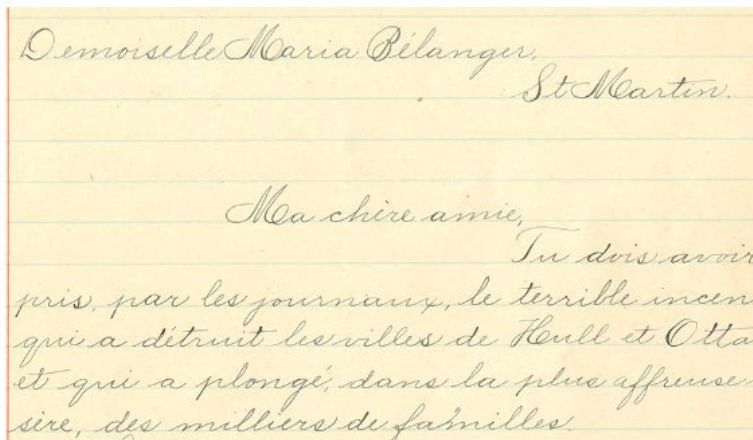 Demoiselle Maria Bélanger,
St Martin.
Ma chère amie,
Tu dois avoir
pris, par les journaux, le terrible incen
qui a détruit les villes de Hull et Otta
et qui a plongé, dans la plus affreuse
sère, des milliers de familles.